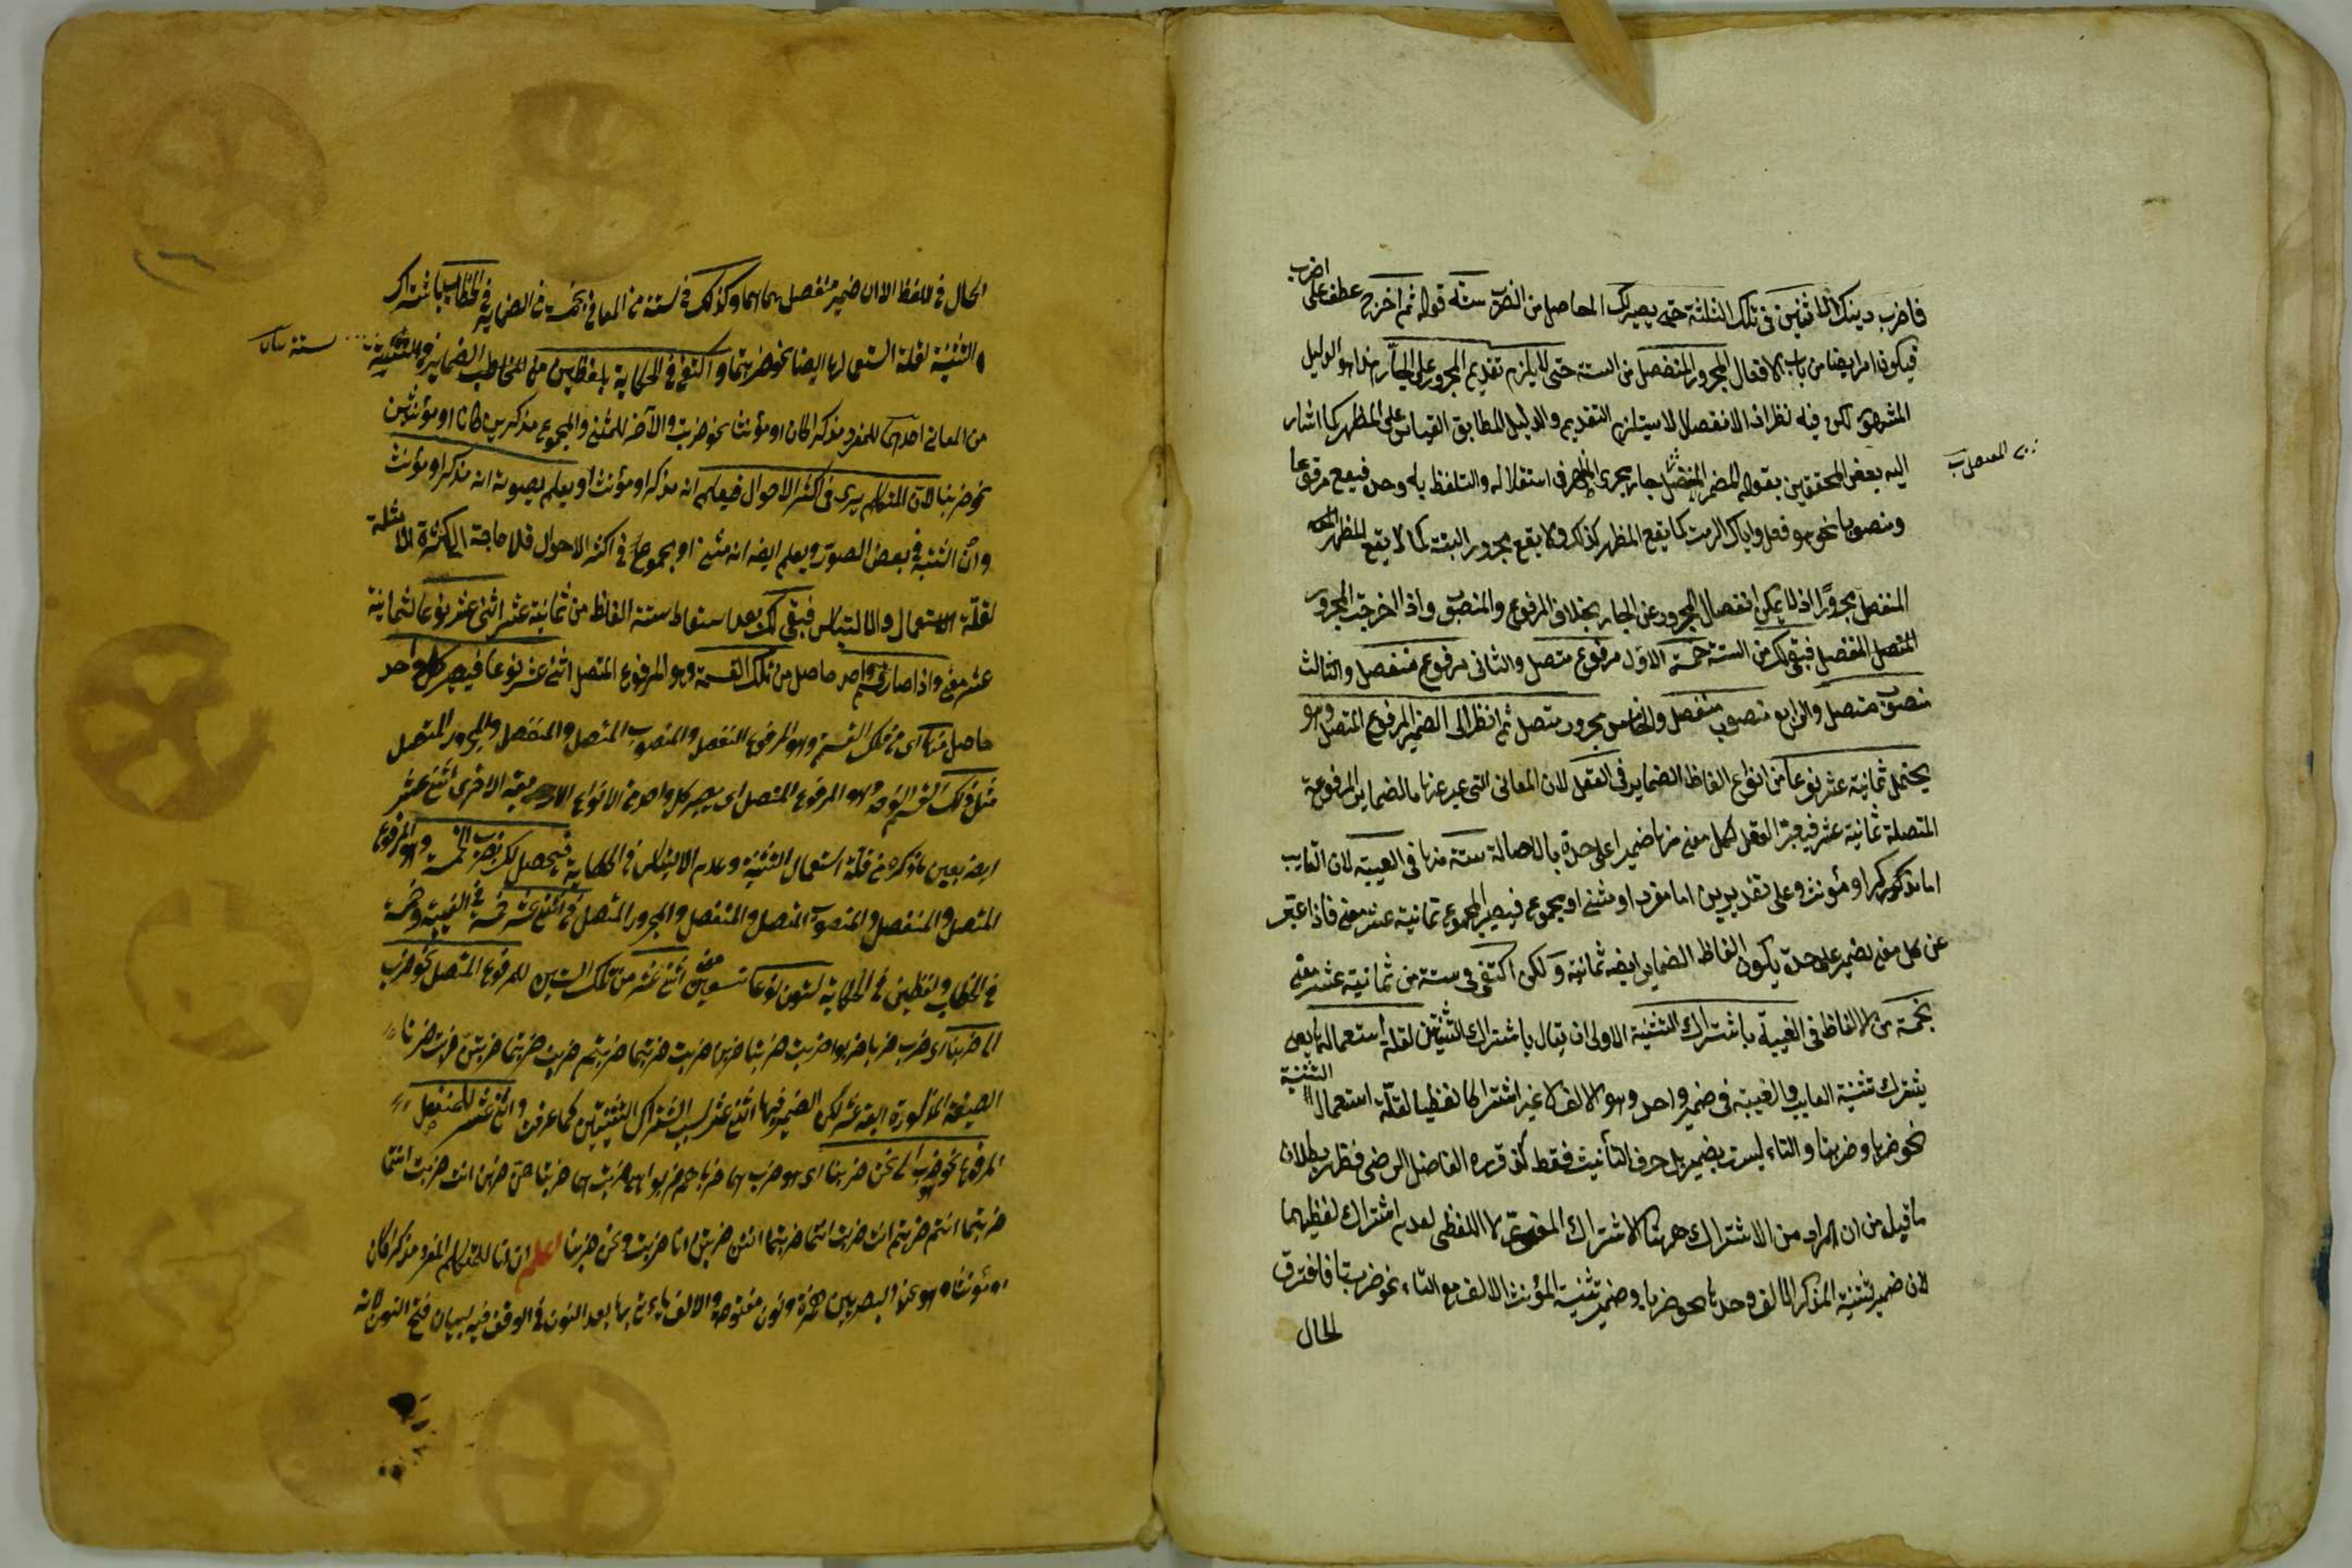 فاضرب دينك الاثنين في تلك الثلثة حتى يصير لك الحاصل من الضرب ستة قوله ثم اخرج عطف على اضرب
فيكون امرا ايضا من باب الافعال المجرور المنفصل من الستة حتى لا يلزم تقديم المجرور على الجار هذا هو الدليل
المشهور لكن فيه نظر اذ الانفصال لا يستلزم التقديم والدليل المطابق القياس على المظهر كما اشار
اليه بعض المحققين بقوله المضمر المنفصل جار مجرى الظاهر في استقلاله والتلفظ به وحده فيقع مرفوعا
ومنصوبا نحو هو فعل واياك اكرمت كما يقع المظهر كذلك ولا يقع مجرورا البتة كما لا يقع المظهر
المنفصل مجرورا اذ لا يمكن انفصال المجرور عن الجار بخلاف المرفوع والمنصوب واذا اخرجت المجرور
المتصل المنفصل فبقي لك من الستة خمسة الاول مرفوع متصل والثاني مرفوع منفصل والثالث
منصوب متصل والرابع منصوب منفصل والخامس مجرور متصل ثم انظر الى الضمير المرفوع المتصل وهو
يحتمل ثمانية عشر نوعا من انواع الفاظ الضماير في العقل لان المعاني التي عبر عنها بالضماير المرفوعة
المتصلة ثمانية عشر فيعبر العقل لكل معنى منها ضميرا على حدة بالاصالة ستة منها في الغيبة لان الغايب
اما مذكر او مؤنث وعلى تقديرين اما مفرد او مثنى او مجموع فيصير المجموع ثمانية عشر معنى فاذا عبر
عن كل معنى بضمير على حدة يكون الفاظ الضماير ايضا ثمانية ولكن اكتفى في ستة من ثمانية عشر معنى
بخمسة من الالفاظ في الغيبة باشتراك التثنية الاولى ان يقال باشتراك التثنيتين لقلة استعمالها يعني
يشترك تثنية الغايب والغيبة في ضمير واحد وهو الالف لا غير اشتراكا لفظيا لقلة استعمال التثنية
نحو ضربا وضربتا والتاء ليست بضمير بل حرف التأنيث فقط كذا قرره الفاضل الرضي فظهر بطلان
ما قيل من ان المراد من الاشتراك ههنا الاشتراك المعنوي لا اللفظي لعدم اشتراك لفظيهما
لان ضمير تثنية المذكر الالف وحدها نحو ضربا وضمير تثنية المؤنث الالف مع التاء نحو ضربتا فافترق
الحال
الحال في اللفظ الا ان ضمير منفصلهما هما وكذلك في ستة من المعاني بخمسة من الضماير في الخطاب باشتراك
التثنية لقلة استعمالها ايضا نحو ضربتما واكتفي في الحكاية بلفظين
من المعاني احدهما للمفرد مذكرا كان او مؤنثا نحو ضربت والآخر للمثنى والمجموع مذكرين كانا او مؤنثين
نحو ضربنا لان المتكلم يرى في اكثر الاحوال فيعلم انه مذكر او مؤنث او يعلم بصوته انه مذكر او مؤنث
وان اشتبه في بعض الصور ويعلم ايضا انه مثنى او مجموع في اكثر الاحوال فلا حاجة الى كثرة الامثلة
لقلة الاستعمال والالتباس فبقي لك بعد اسقاط ستة الفاظ من ثمانية عشر اثني عشر نوعا لثمانية
عشر معنى واذا صار قسم واحد حاصل من تلك القسمة وهو المرفوع المتصل اثني عشر نوعا فيصير كل واحد
حاصل منها اي من تلك القسمة وهو المرفوع المنفصل والمنصوب المتصل والمنفصل والمجرور المتصل
مثل ذلك القسم الواحد وهو المرفوع المتصل اي يصير كل واحد من الانواع الاربعة الاخرى اثني عشر
ايضا بعين ما ذكر من قلة استعمال التثنية وعدم الالتباس في الحكاية فيحصل لك بضرب الخمسة وهو المرفوع
المتصل والمنفصل والمنصوب المتصل والمنفصل والمجرور المتصل في اثني عشر خمسة في الغيبة وخمسة
في الخطاب ولفظين في الحكاية ستون نوعا لتسعين معنى اثني عشر من تلك الستين للمرفوع المتصل نحو ضرب
الى ضربنا اي ضرب ضربا ضربوا ضربت ضربتا ضربن ضربت ضربتما ضربتم ضربت ضربتما ضربتن ضربت ضربنا
الصيغة المذكورة اربعة عشر لكن الضمير فيها اثني عشر لسبب اشتراك التثنيتين كما عرفت واثني عشر للمنفصل
المرفوع نحو هو ضرب الى نحن ضربنا اي هو ضرب هما ضربا هم ضربوا هي ضربت هما ضربتا هن ضربن انت ضربت انتما
ضربتما انتم ضربتم انت ضربت انتما ضربتما انتن ضربتن انا ضربت ونحن ضربنا اعلم ان انا للمتكلم المفرد مذكرا كان
او مؤنثا وهو عند البصريين همزة ونون مفتوحة والالف يؤتى بها بعد النون في الوقف فيه لبيان فتح النون لانه